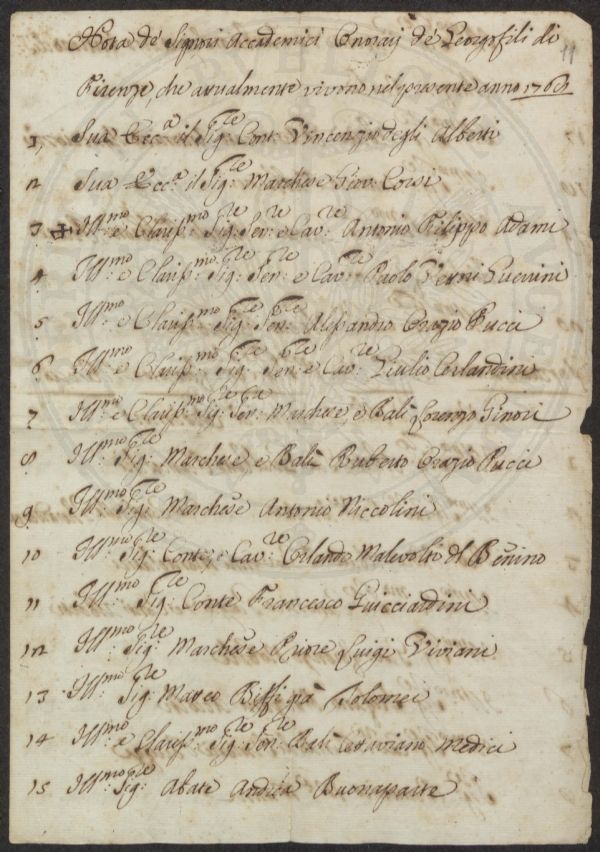 Nota de Signori Accademici Onorarij de Georgofili di
Firenze, che attualmente vivono nel presente anno
1, Sua Ecc.a il Sig:re Cont: Vincenzio degli Alberti
2 Sua Ecc.a il Sig:re Marchese Giov: Corsi
3 Ill:mo e Clariss:mo Sig:re Sen:re e Cav:re Antonio Filippo Adami
4 Ill:mo e Clariss:mo Sig:re Sen:re e Cav:re Paolo Verni Guerrini
5 Ill:mo e Clariss:mo Sig:re Sen:re Alessandro Orazio Pucci
6 Ill:mo e Clariss:mo Sig:re Sen:re e Cav:re Giulio Orlandini
7 Ill:mo e Clariss:mo Sig:re Sen:re Marchese e Balì Lorenzo Ginori
8 Ill:mo Sig:re Marchese e Balì Ruberto Orazio Pucci
9 Ill:mo Sig:re Marchese Antonio Niccolini
10 Ill:mo Sig:re Conte, e Cav:re Orlando Malevolti del Benino
11 Ill:mo Sig:re Conte Francesco Guicciardini
12 Ill:mo Sig:re Marchese Priore Luigi Viviani
13 Ill:mo Sig:re Marco Biffi già Tolomei
14 Ill:mo e Clariss:mo Sig:re Sen:re Balì Ottaviano Medici
15 Ill:mo Sig:re Abate Andrea Buonaparte